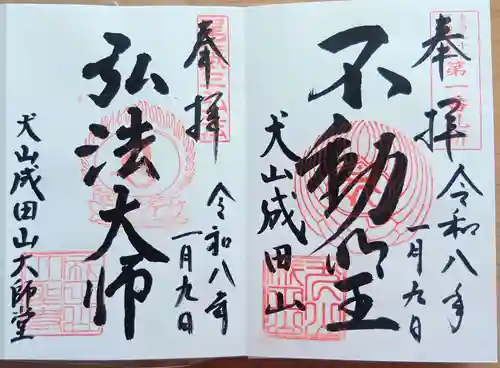 奉拝
第一番
令和八年
一月九日
不動明王
犬山成田山
奉拝
令和八年
一月九日
弘法大師
犬山成田山大師堂